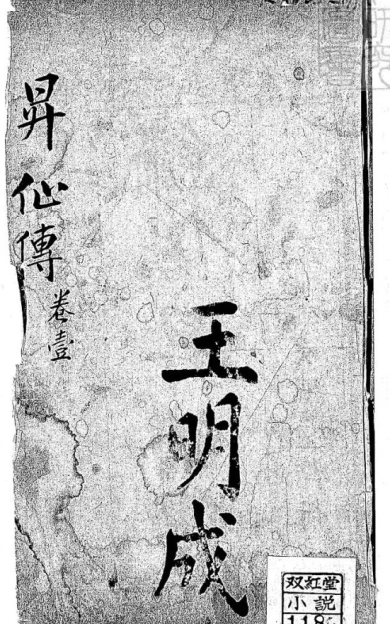 昇仙傳
卷壹
王明成
双紅堂
小説
118